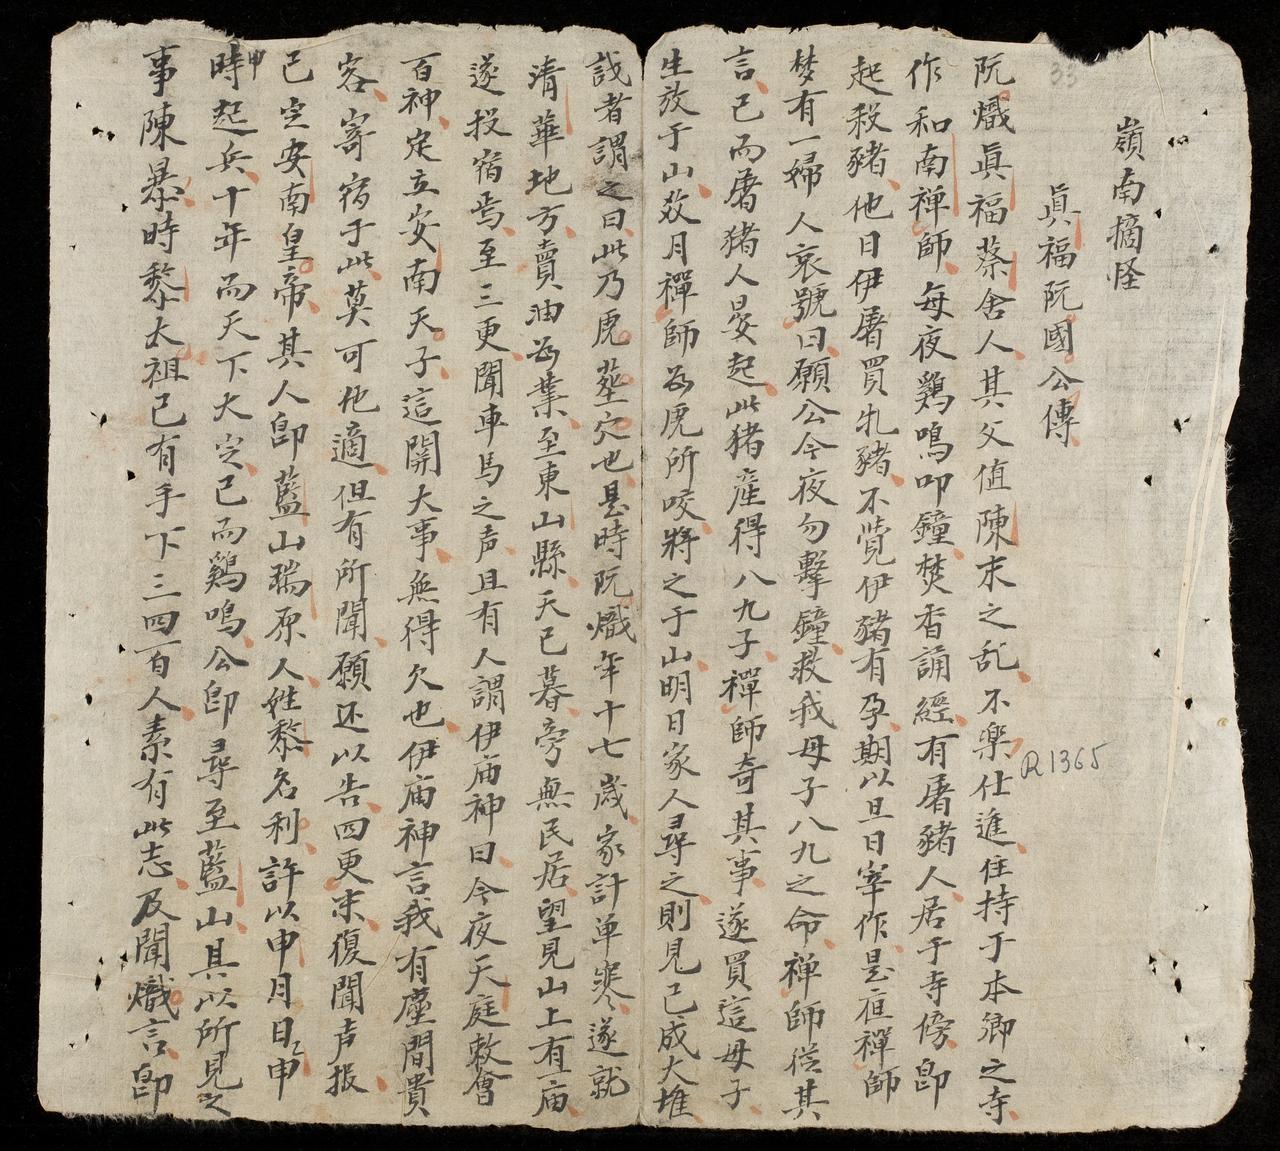 嶺南摘怪
眞福阮國公傳
阮熾眞福蔡舍人其父値陳末之乱不樂仕進住持于本鄉之寺
作和南禅師每夜鷄鳴叩鐘焚香誦經有屠豬人居于寺傍卽
起殺豬他日伊屠買牝豬不覺伊豬有孕期以旦日宰作是夜禪師
梦有一婦人哀號曰願公今夜勿擊鐘救我母子八九之命禅師從其
言已而屠猪人晏起此猪産得八九子禪師奇其事遂買這母子
生放于山数月禪師為虎所咬將之于山明日家人尋之則見已成大堆
識者謂之曰此乃虎塟穴也是時阮熾年十七歲家計单寒遂就
清華地方賣油為業至東山縣天已暮旁無民居望見山上有庙
遂投宿焉至三更聞車馬之声且有人謂伊庙神曰今夜天庭敕會
百神定立安南天子這開大事無得欠也伊庙神言我有塵間貴
客寄宿于此莫可他適但有所聞願还以告四更末復聞声报
已定安南皇帝其人卽藍山瑞原人姓黎名利許以申月日申
時起兵十年而天下大定已而鷄鳴公卽尋至藍山具以所見之
申
事陳暴時黎太祖已有手下三四百人素有此志及聞熾言卽
33
R1365